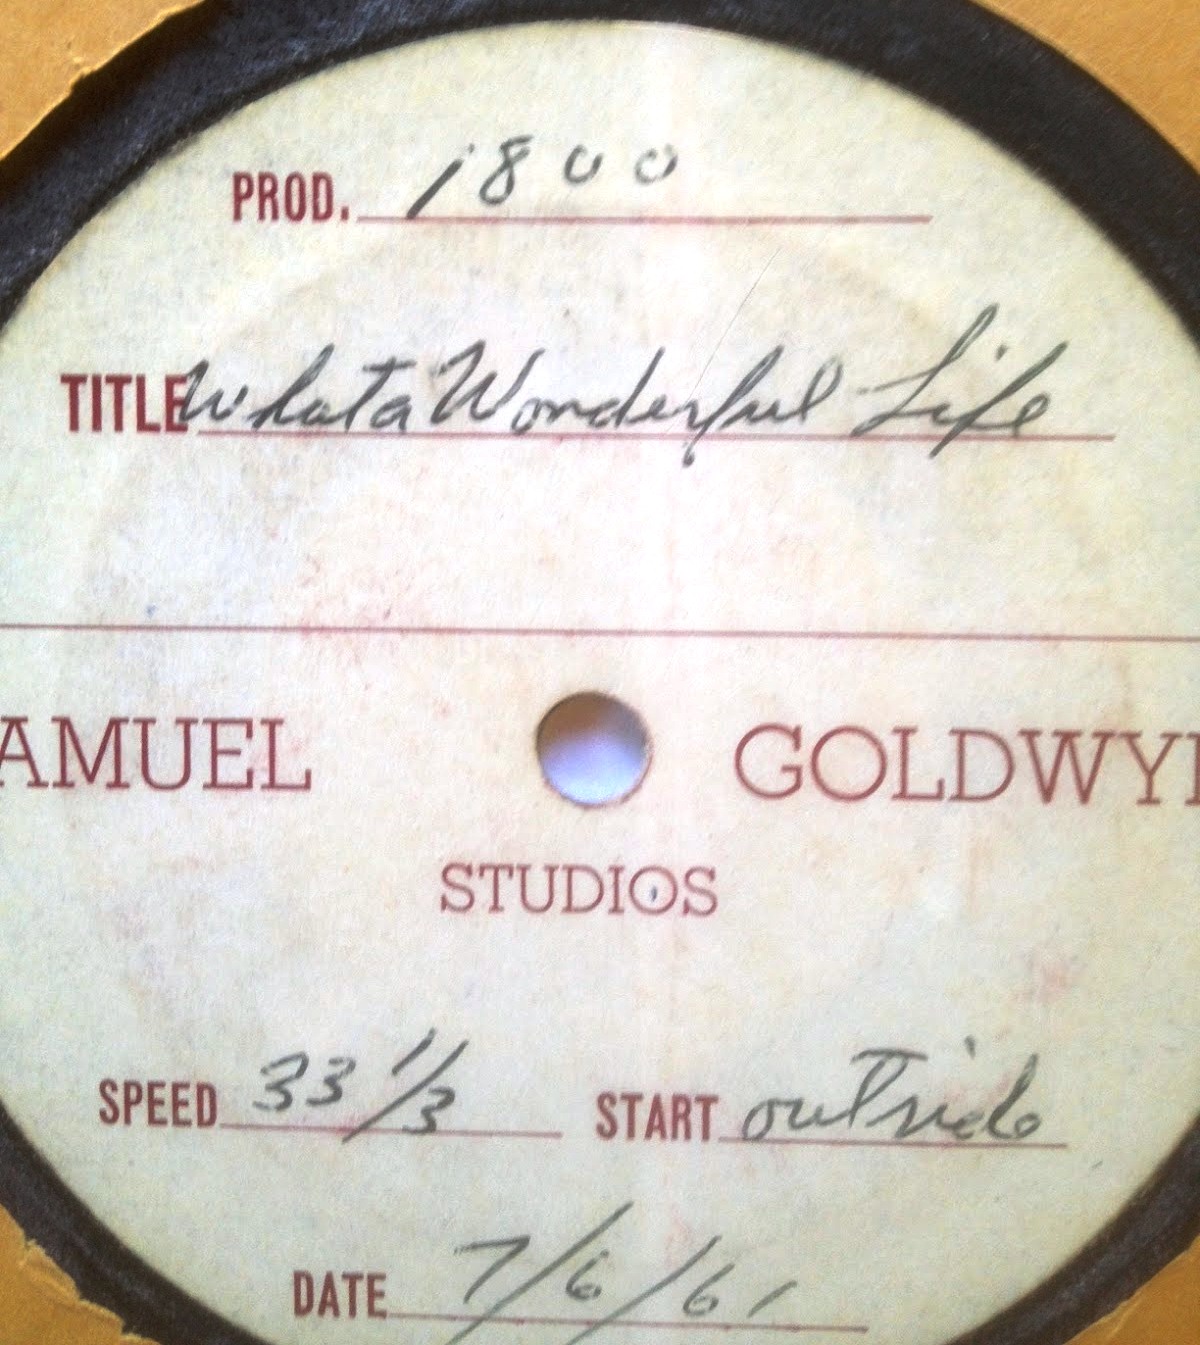 PROD. 1800
TITLE What a Wonderful Life
AMUEL GOLDWY
STUDIOS
SPEED 33 1/3 START outside
DATE 7/6/61